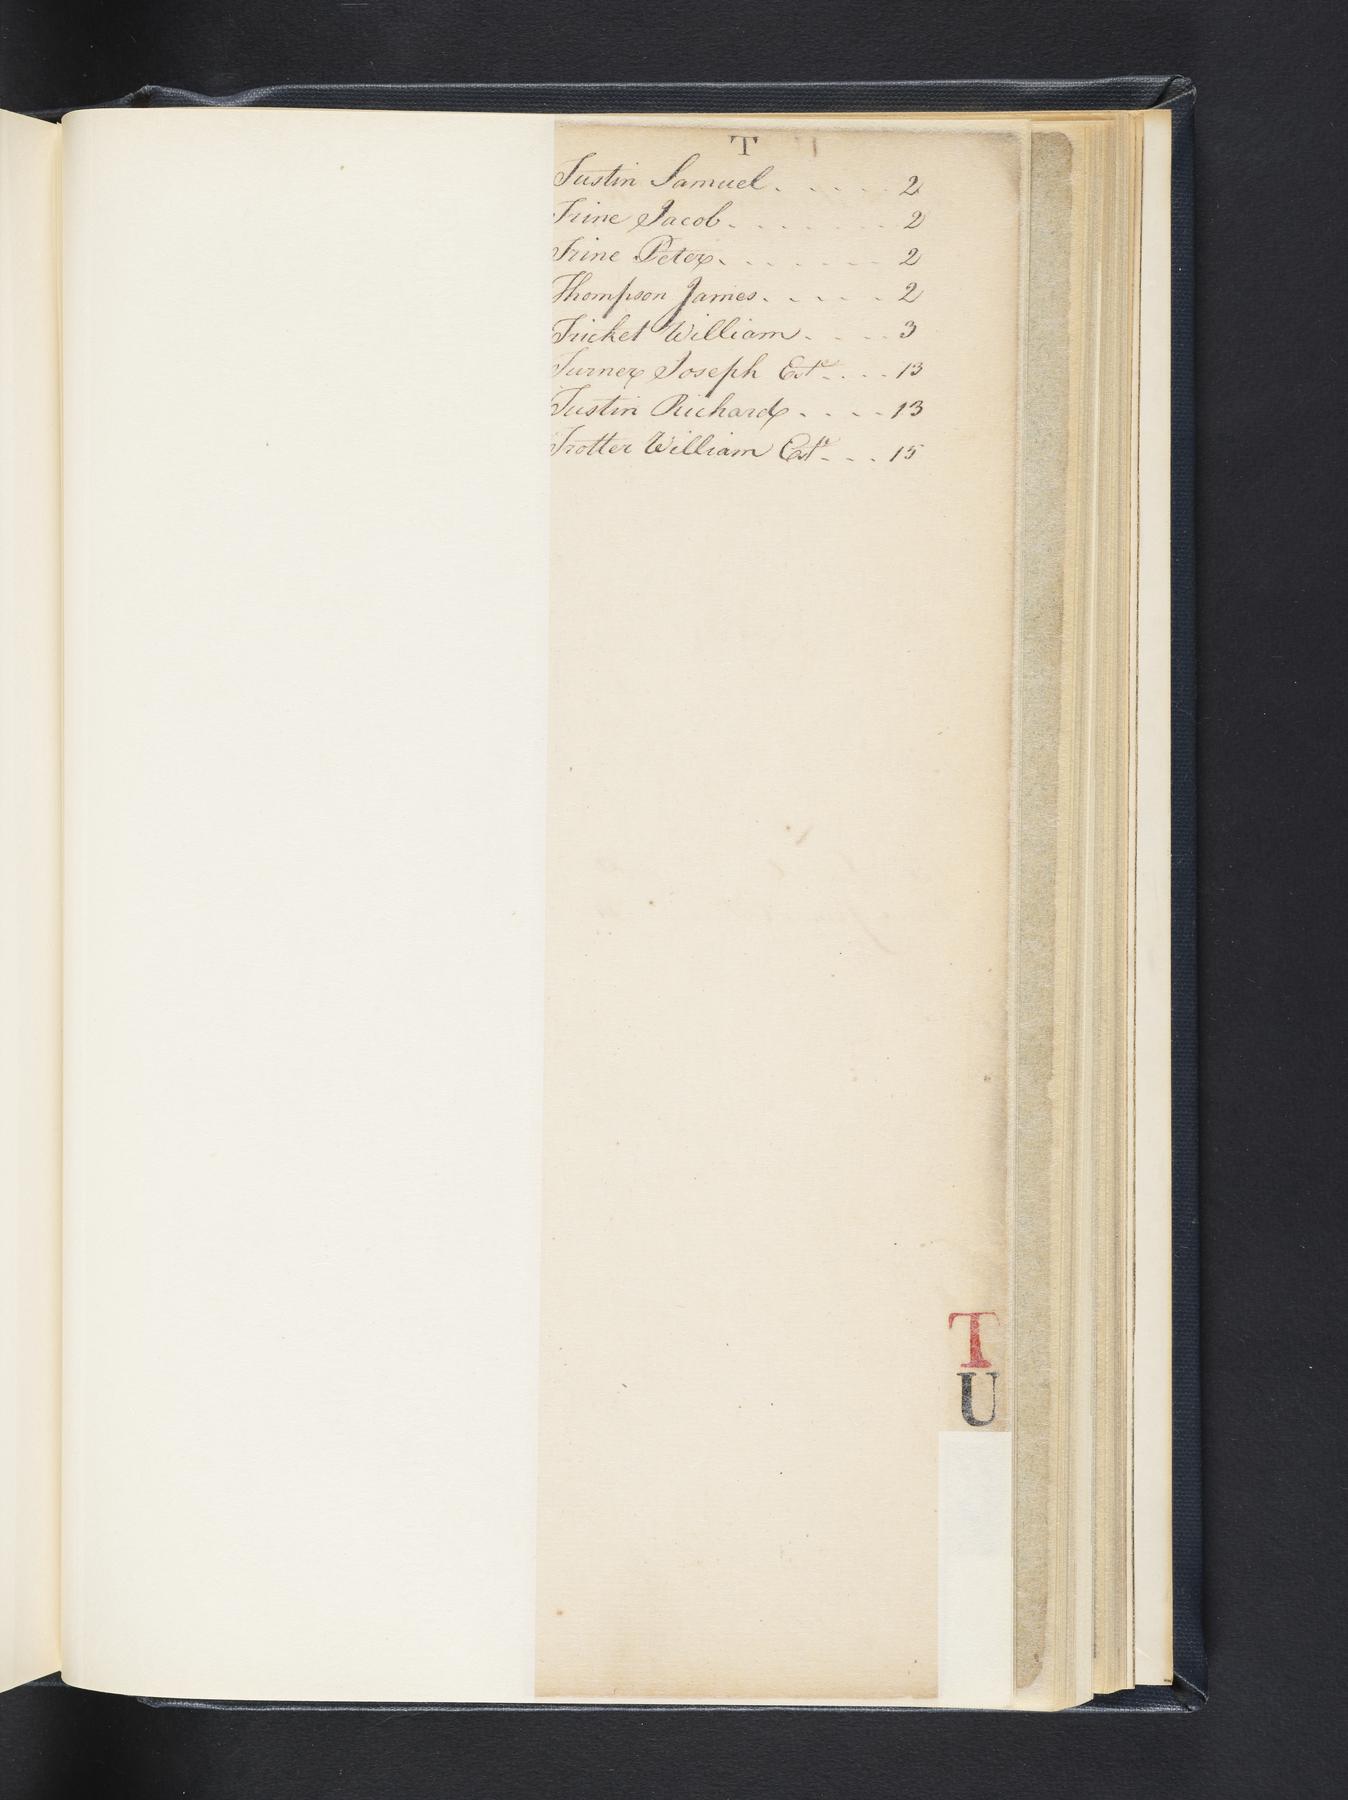 T
Tustin Samuel. . . . . 2
Trine Jacob. . . . . . . 2
Trine Peter. . . . . . . 2
Thompson James. . . . . 2
Tricket William. . . . . 3
Turner Joseph Estᵉ. . . . 13
Tustin Richard. . . . . 13
Trotter William Estᵉ. . . 15
T
U